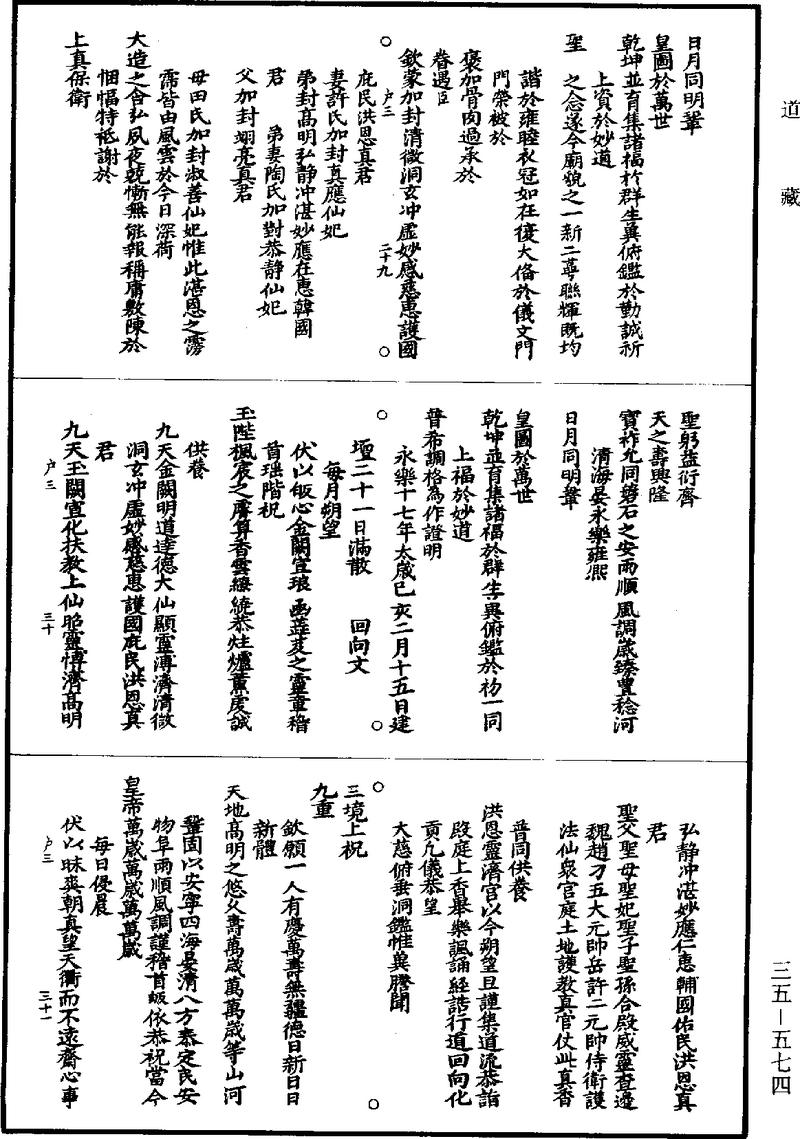 道藏
日月同明鞏
皇圖於萬世
乾坤並育集諸福於群生冀俯鑑於勤誠祈
上資於妙道
聖　之念遂令廟貌之一新二尊聯輝既均
諧於雍睦衣冠如在復大俻於儀文門
門榮被於
褒加骨肉過承於
眷遇臣
欽蒙加封清微洞玄冲虛妙感慈惠護國
户三　二十九
庶民洪恩真君
妻許氏加封真應仙妃
弟封高明弘静冲湛妙應在惠韓國
君　弟妻陶氏加對恭静仙妃
父加封翊亮真君
母田氏加封淑善仙妃惟此湛恩之霶
霈皆由風雲於今日深荷
大造之含弘夙夜兢慚無能報稱庸敷陳於
悃愊特祗謝於
上真保衛
聖躬益衍齊
天之壽興隆
寶祚允同磐石之安雨順風調歲臻豐稔河
清海晏永樂雍熙
日月同明鞏
皇圖於萬世
乾坤並育集諸福於群生冀俯鑑於初一同
上福於妙道
普希調格為作證明
永樂十七年太歲已亥二月十五日建
壇二十一日滿散　回向文
每月朔望
伏以皈心金闕宣琅函蕋芨之靈章稽
首瑶階祝
玉陛楓宸之膺算香雲繚繞恭炷爐薰虔誠
供養
九天金闕明道達德大仙顯靈溥濟清微
洞玄冲虛妙感慈惠護國庇民洪恩真
君
九天玉闕宣化扶教上仙昭靈博濟高明
户三　三十
弘静冲湛妙應仁惠輔國佑民洪恩真
君
聖父聖母聖妃聖子聖孫合殿威靈查邊
魏趙刁五大元帥岳許二元帥侍衛護
法仙衆官庭土地護教真官仗此真香
普同供養
洪恩靈濟宫以今朔望旦謹集道流恭詣
殿庭上香舉樂諷誦經誥行道回向化
貢凡儀恭望
大慈俯垂洞鑑惟冀膠聞
三境上祝
九重
欽願一人有慶萬壽無疆德日新日日
新體
天地高明之悠久壽萬歲萬萬歲等山河
鞏固以安寧四海晏清八方泰定民安
物阜雨順風調謹稽首皈依恭祝當今
皇帝萬歲萬歲萬萬歲
每日侵晨
伏以昧爽朝真望天衢而不遠齋心事
户三　三十一
三五—五七四